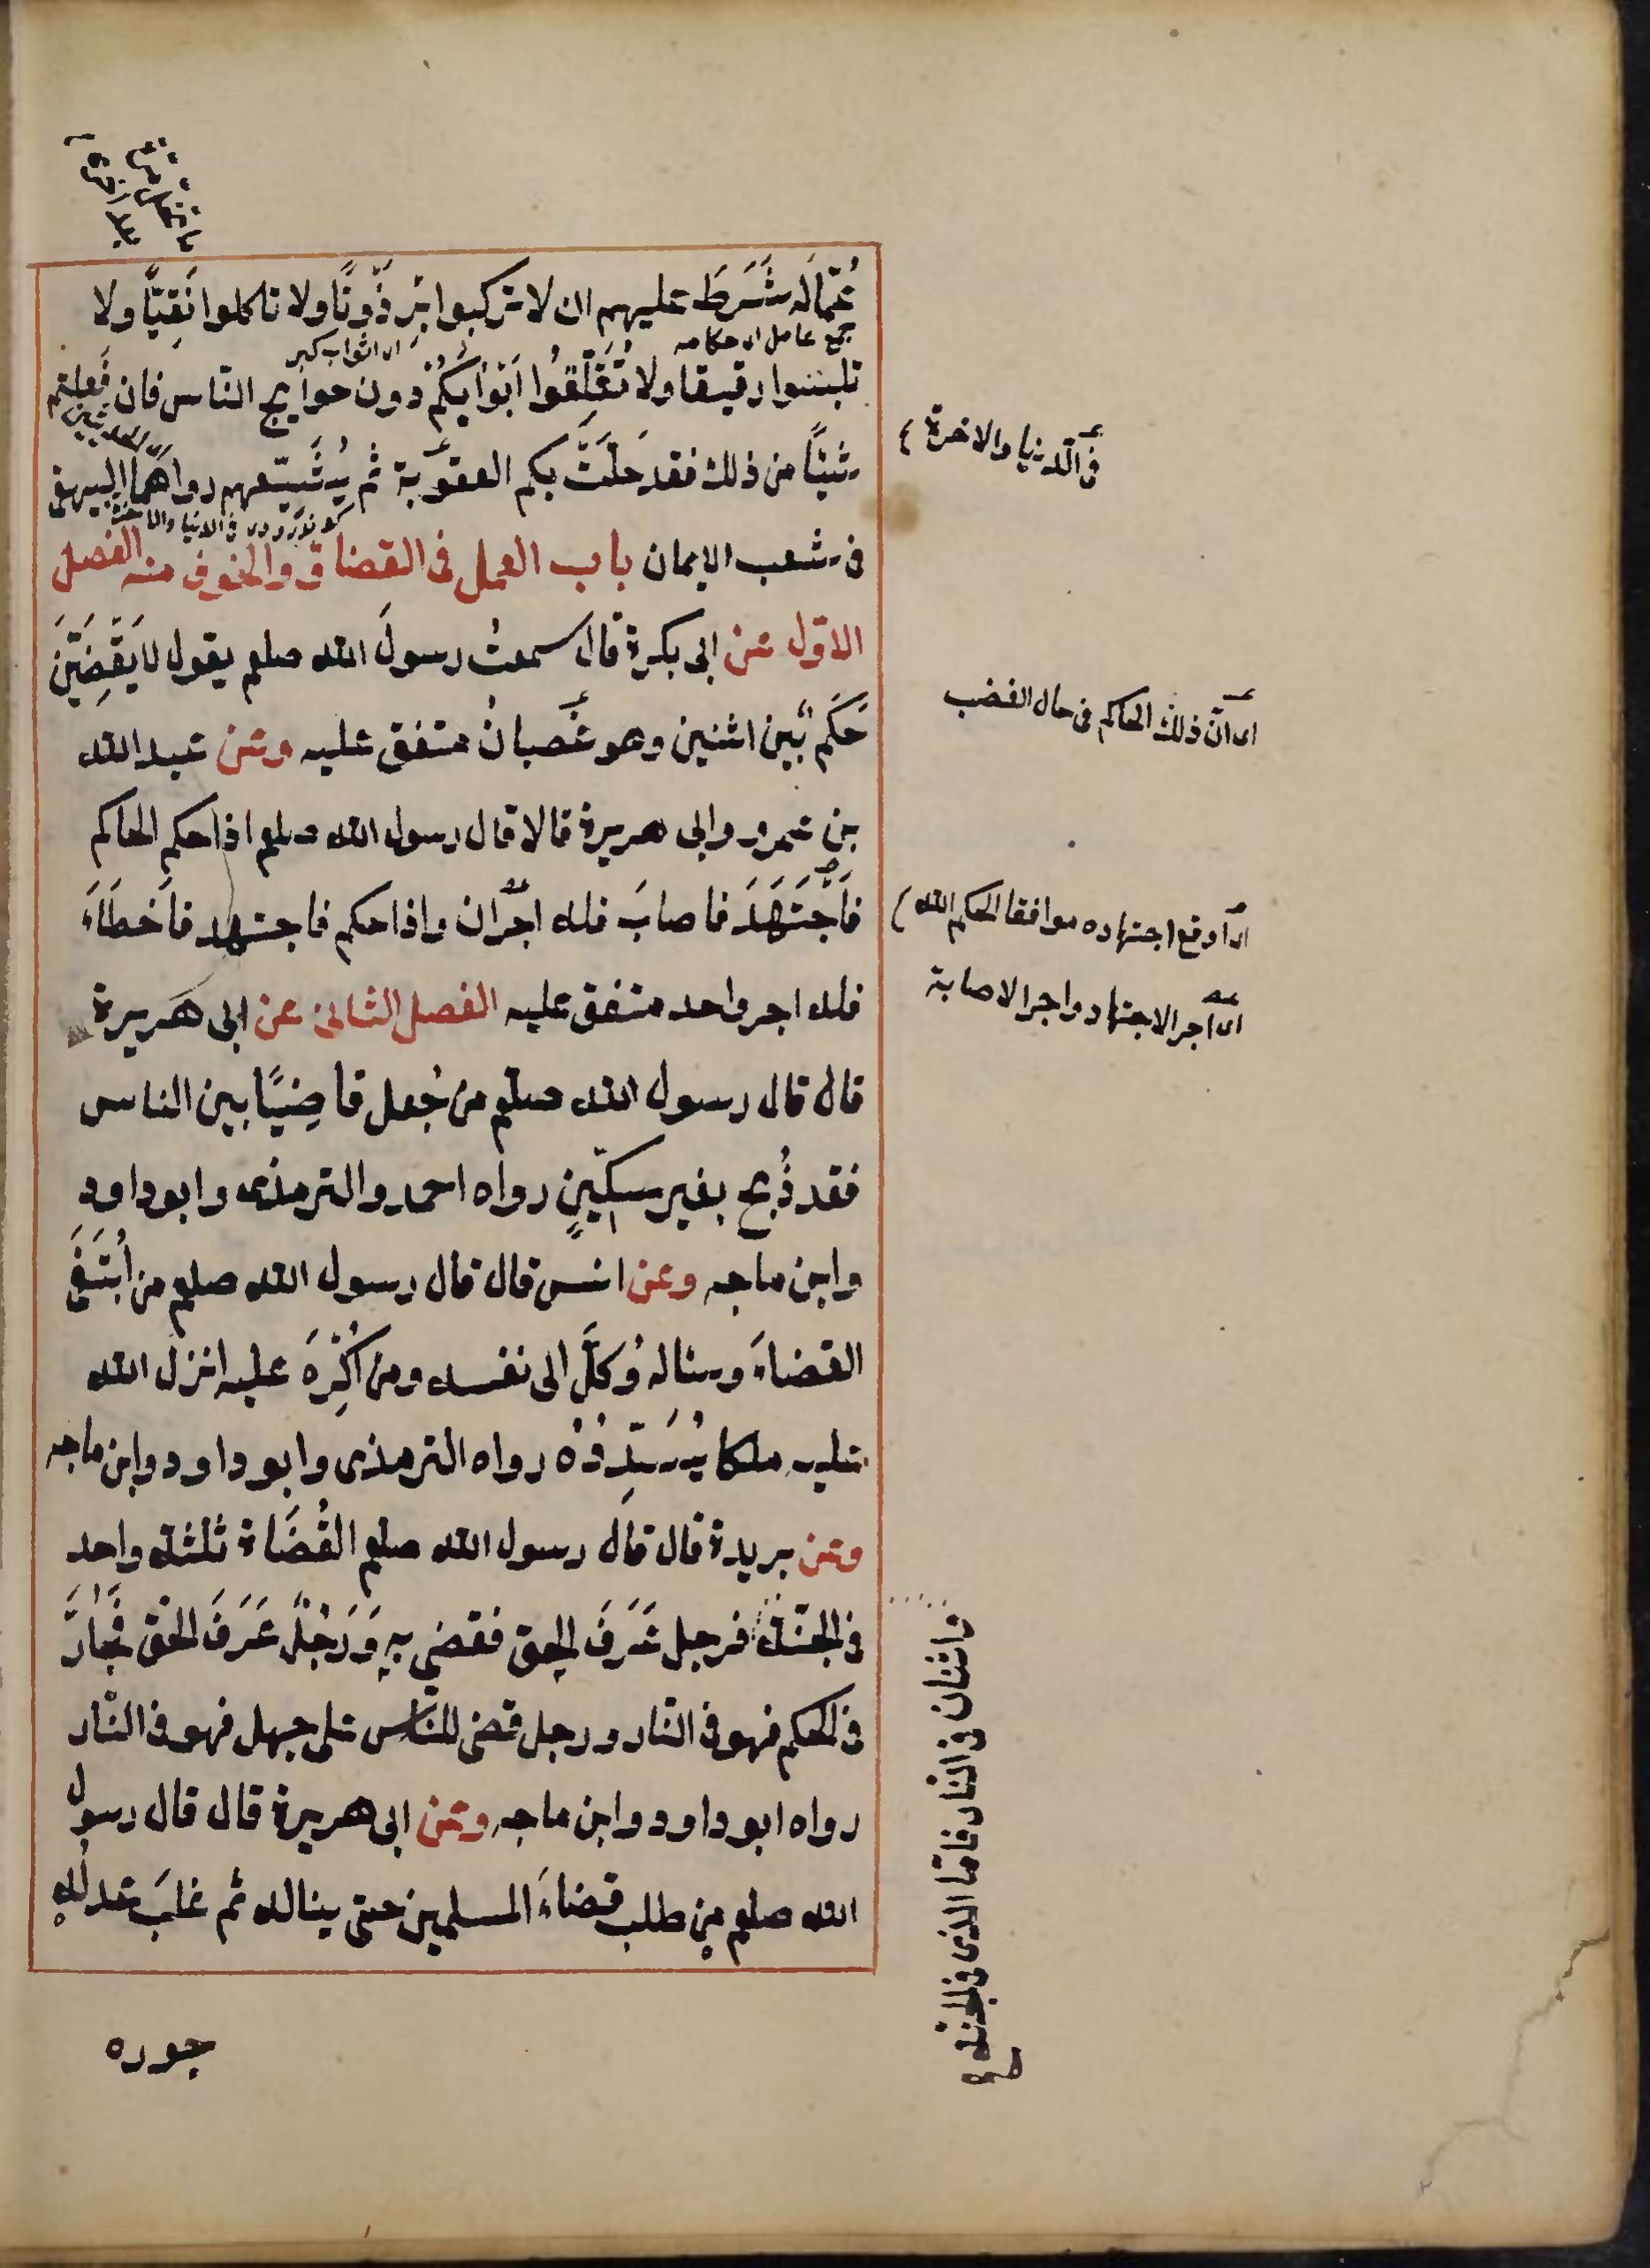 عُمَّالَه شَرَطَ عليهم ان لا تركبوا بِرْذَوْنًا ولا تاكلوا نَقِيًّا ولا
جمع عامل اى حكامه
تلبسوا رقيقا ولا تُغَلِّقُوا اَبْوَابَكُمْ دون حوايج النّاس فان فَعلتم
شيئًا من ذلك فقد حَلَّتْ بكم العقوبة ثم يُشَيِّعهم رواهما البيهقى
فى شعب الايمان باب العمل فى القضاة والخوف منه الفصل
الاوّل عن ابى بكرة قال سمعتُ رسولَ الله صلعم يقول لا يَقْضِيَنَّ
حَكَمٌ بَيْن اثنين وهو غَضبانُ متفق عليه وعن عبد الله
بن عمرو وابى هريرة قالا قال رسول الله صلعم اذا حكم الحاكم
فَاجْتَهَدَ فاصابَ فله اجْران واذا حكم فاجتهد فاَخطَاءَ
فله اجر واحد متفق عليه الفصل الثانى عن ابى هَريرة
قال قال رسول الله صلعم من جُعل قاضِيًا بين الناس
فقد ذُبح بغير سِكّينٍ رواه احمد والترمذى وابو داود
وابن ماجه وعن انس قال قال رسول الله صلعم من اُبْتَغَى
القضاءَ وساله وُكِلَ الى نفسه ومن اُكْرِهَ عليه انزل الله
عليه ملكا يُسَدِّدُهُ رواه الترمذى وابو داود وابن ماجه
وعن بريدة قال قال رسول الله صلعم القُضَاة ثلثة واحد
فى الجنّة فرجل عَرَفَ الحق فقضى بهِ وَرَجُلٌ عَرَفَ الحَق فَجَارَ
فى الحكم فهو فى النّار ورجل قضى للنّاس على جهل فهو فى النّار
رواه ابو داود وابن ماجه وعن ابى هريرة قال قال رسول
الله صلعم من طلب قضاءَ المسلمين حتى يناله ثم غلبَ عدلُه
جوره
فى الدنيا والاخرة
اى انّ ذلك الحاكم فى حال الغضب
اى وقع اجتهاده موافقا لحكم الله
اى اجر الاجتهاد واجر الاصابة
واثنان فى النّار فامّا الذى فى الجنة